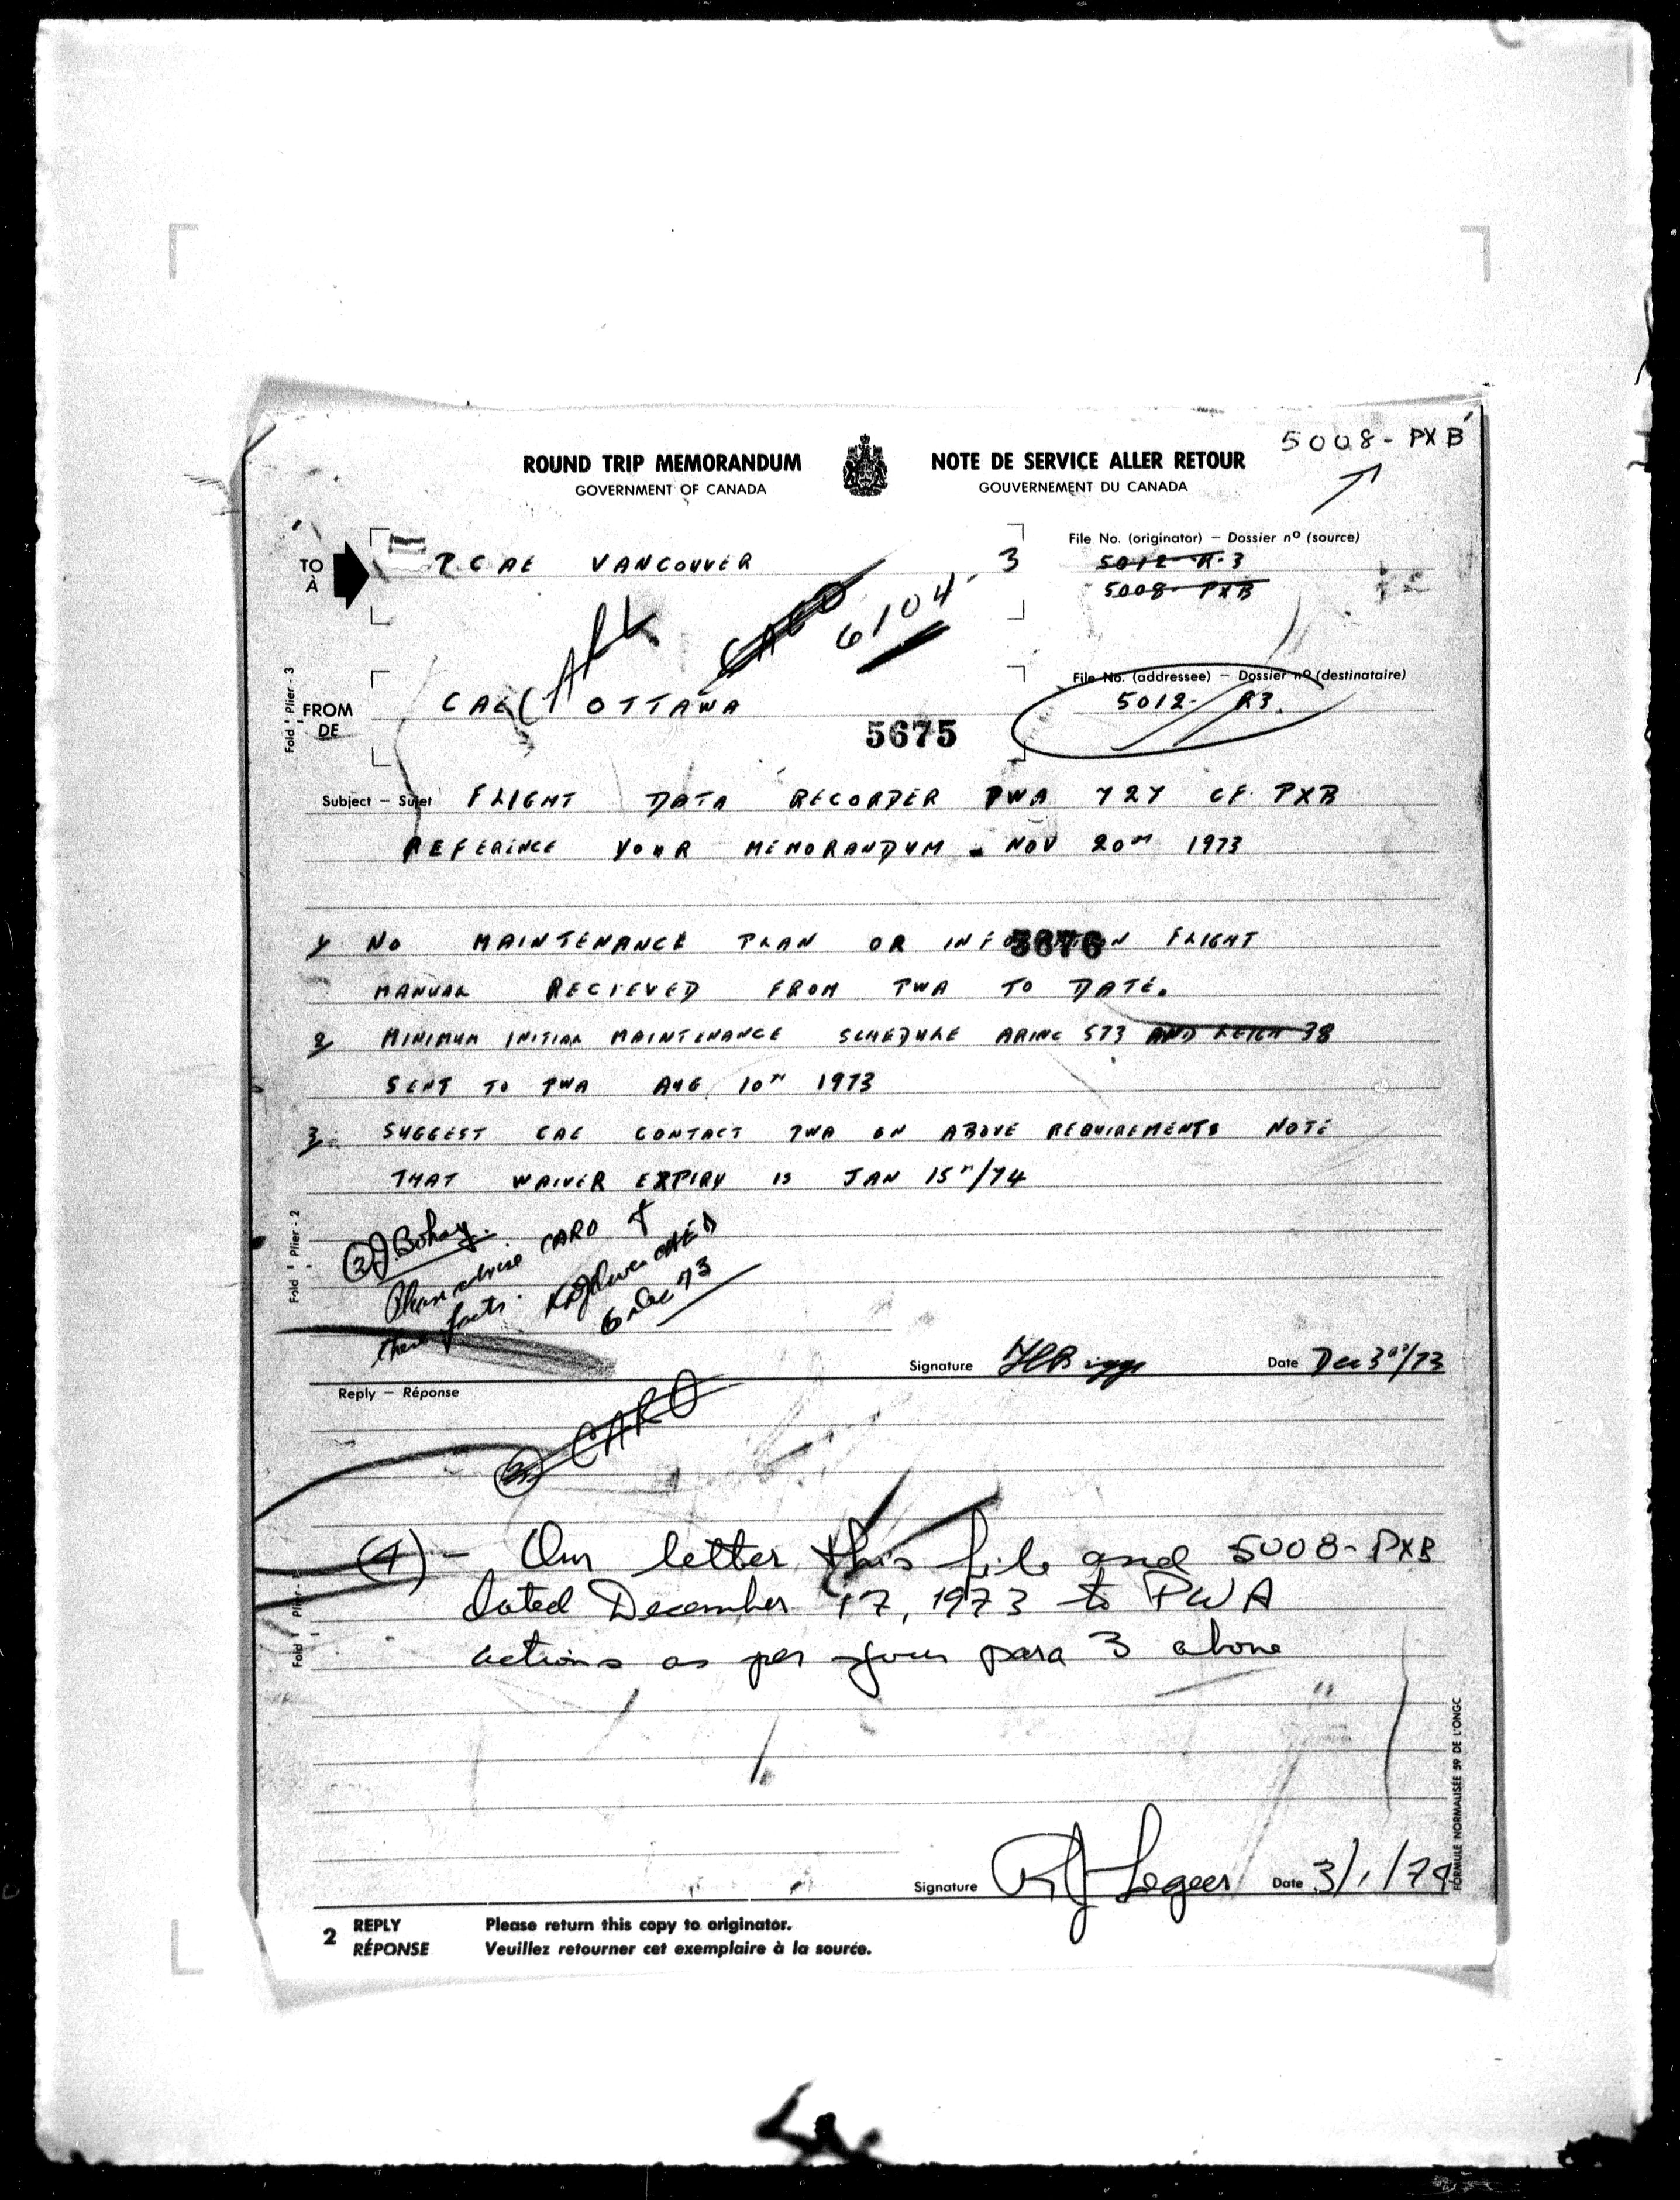 5008-PXB
ROUND TRIP MEMORANDUM
GOVERNMENT OF CANADA
NOTE DE SERVICE ALLER RETOUR
GOUVERNEMENT DU CANADA
TO
À
RCAE VANCOUVER
3
File No. (originator) – Dossier nº (source)
5012-R-3
5008-PXB
CAEO
6104
FROM
DE
CAE OTTAWA
File No. (addressee) – Dossier nº (destinataire)
5012- R3.
5675
Fold Plier - 3
Subject – Sujet FLIGHT DATA RECORDER PWA 727 CF-PXB
REFERENCE YOUR MEMORANDUM - NOV 20TH 1973
1 NO MAINTENANCE PLAN OR INFORMATION FLIGHT
5676
MANUAL RECIEVED FROM PWA TO DATE.
2 MINIMUM INITIAL MAINTENANCE SCHEDULE ARINC 573 AND LEIGH 38
SENT TO PWA AUG 10TH 1973
3 SUGGEST CAE CONTACT PWA ON ABOVE REQUIREMENTS NOTE
THAT WAIVER EXPIRY IS JAN 15TH/74
Fold Plier - 2
(2) J. Bohay.
Please advise CARO of
these facts.
6 Dec 73
Signature Date Dec 3rd/73
Reply – Réponse
CARO
(4) - Our letter this file and 5008-PXB
dated December 17, 1973 to PWA
actions as per your para 3 above
Fold Plier-
Signature Date 3/1/74
FORMULE NORMALISÉE 59 DE L'ONGC
2 REPLY
RÉPONSE
Please return this copy to originator.
Veuillez retourner cet exemplaire à la source.